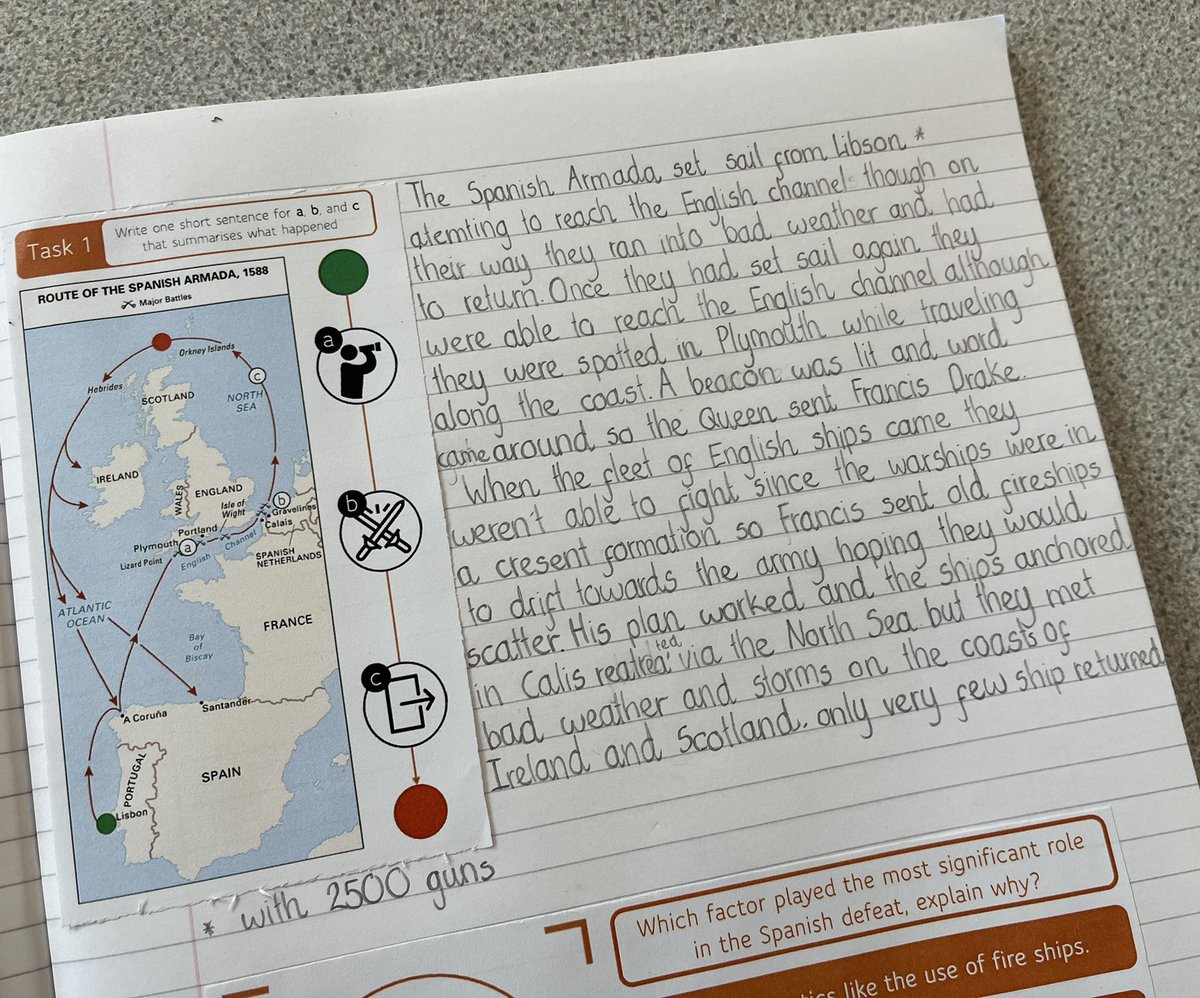 Task 1
Write one short sentence for a, b, and c
that summarises what happened
ROUTE OF THE SPANISH ARMADA, 1588
Major Battles
Orkney Islands
Hebrides
c
SCOTLAND
NORTH
SEA
IRELAND
WALES
ENGLAND
Isle of
Wight
b
Gravelines
Calais
Portland
Plymouth
a
Lizard Point
English Channel
SPANISH
NETHERLANDS
ATLANTIC
OCEAN
Bay
of
Biscay
FRANCE
A Coruña
Santander
PORTUGAL
SPAIN
Lisbon
a
b
c
The Spanish Armada set sail from Libson *
atemting to reach the English channel though on
their way they ran into bad weather and had
to return. Once they had set sail again they
were able to reach the English channel although
they were spotted in Plymouth while traveling
along the coast. A beacon was lit and word
came around so the Queen sent Francis Drake.
When the fleet of English ships came they
weren't able to fight since the warships were in
a cresent formation so Francis sent old fireships
to drift towards the army hoping they would
scatter. His plan worked and the ships anchored
in Calis via the North Sea but they met
bad weather and storms on the coasts of
Ireland and Scotland. only very few ship returned
* with 2500 guns
Which factor played the most significant role
in the Spanish defeat, explain why?
like the use of fire ships.